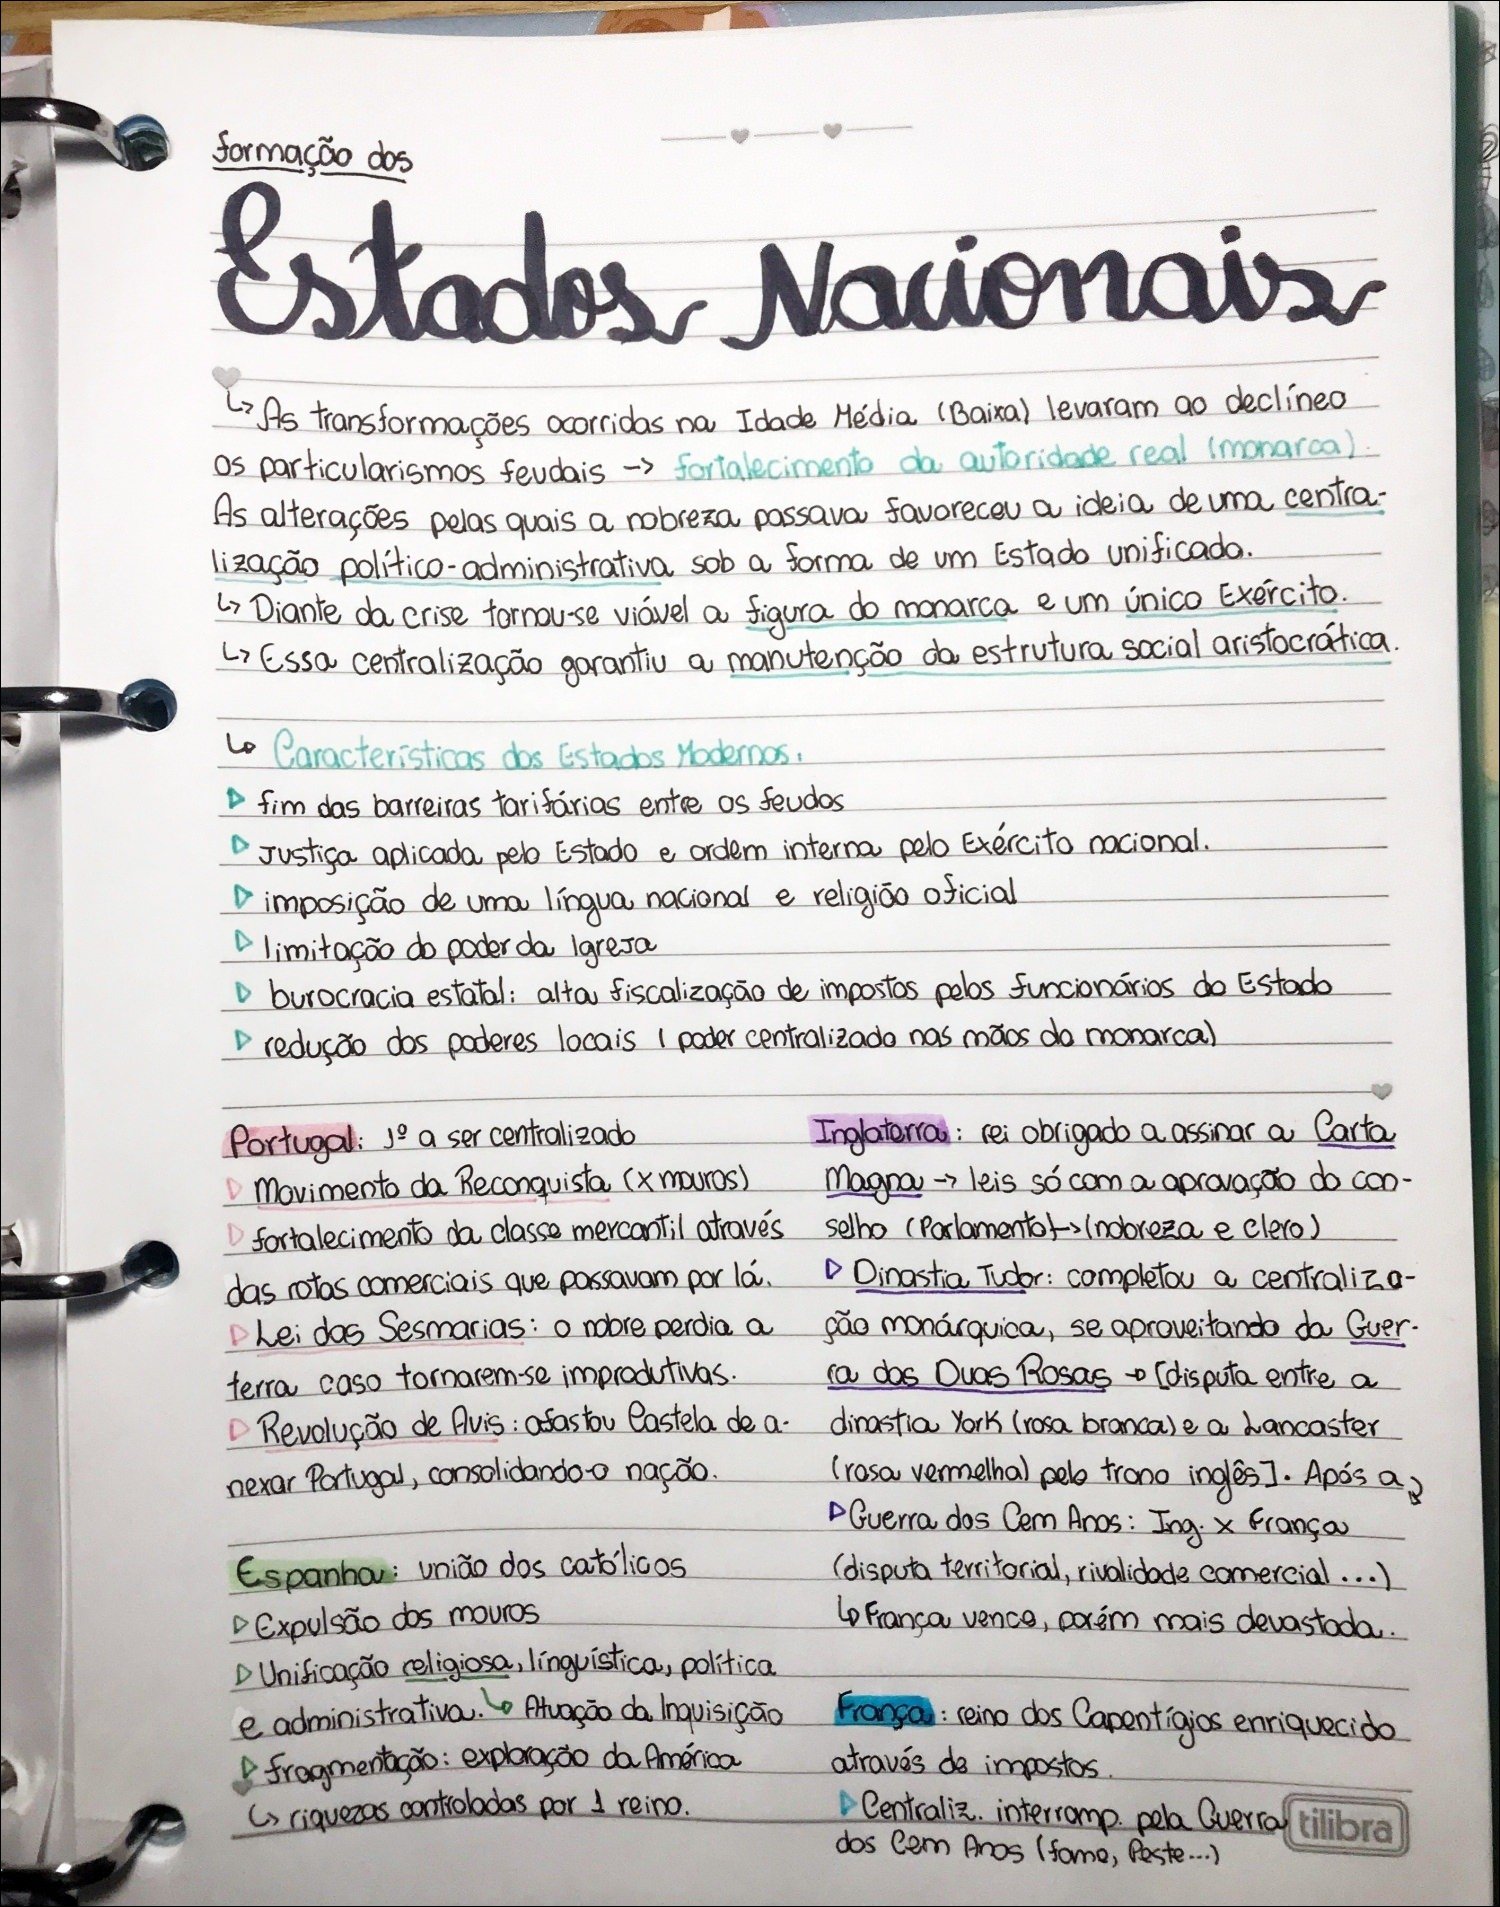 formação dos
Estados Nacionais
↳ As transformações ocorridas na Idade Média (Baixa) levaram ao declíneo
os particularismos feudais → fortalecimento da autoridade real (monarca).
As alterações pelas quais a nobreza passava favoreceu a ideia de uma centra-
lização político-administrativa sob a forma de um Estado unificado.
↳ Diante da crise tornou-se viável a figura do monarca e um único Exército.
↳ Essa centralização garantiu a manutenção da estrutura social aristocrática.
↳ Características dos Estados Modernos:
▷ fim das barreiras tarifárias entre os feudos
▷ Justiça aplicada pelo Estado e ordem interna pelo Exército nacional.
▷ imposição de uma língua nacional e religião oficial
▷ limitação do poder da Igreja
▷ burocracia estatal: alta fiscalização de impostos pelos funcionários do Estado
▷ redução dos poderes locais (poder centralizado nas mãos do monarca)
Portugal: 1º a ser centralizado
▷ Movimento da Reconquista (x mouros)
▷ fortalecimento da classe mercantil através
das rotas comerciais que passavam por lá.
▷ Lei das Sesmarias: o nobre perdia a
terra caso tornarem-se improdutivas.
▷ Revolução de Avis: afastou Castela de a-
nexar Portugal, consolidando-o nação.
Espanha: união dos católicos
▷ Expulsão dos mouros
▷ Unificação religiosa, linguística, política
e administrativa. ↳ Atuação da Inquisição
▷ fragmentação: exploração da América
↳ riquezas controladas por 1 reino.
Inglaterra: rei obrigado a assinar a Carta
Magna → leis só com a aprovação do con-
selho (Parlamento) → (nobreza e clero)
▷ Dinastia Tudor: completou a centraliza-
ção monárquica, se aproveitando da Guer-
ra das Duas Rosas → [disputa entre a
dinastia York (rosa branca) e a Lancaster
(rosa vermelha) pelo trono inglês]. Após a
▷ Guerra dos Cem Anos: Ing. x França
(disputa territorial, rivalidade comercial ...)
↳ França vence, porém mais devastada.
França: reino dos Capentígios enriquecido
através de impostos.
▷ Centraliz. interromp. pela Guerra
dos Cem Anos (fome, Peste...)
tilibra